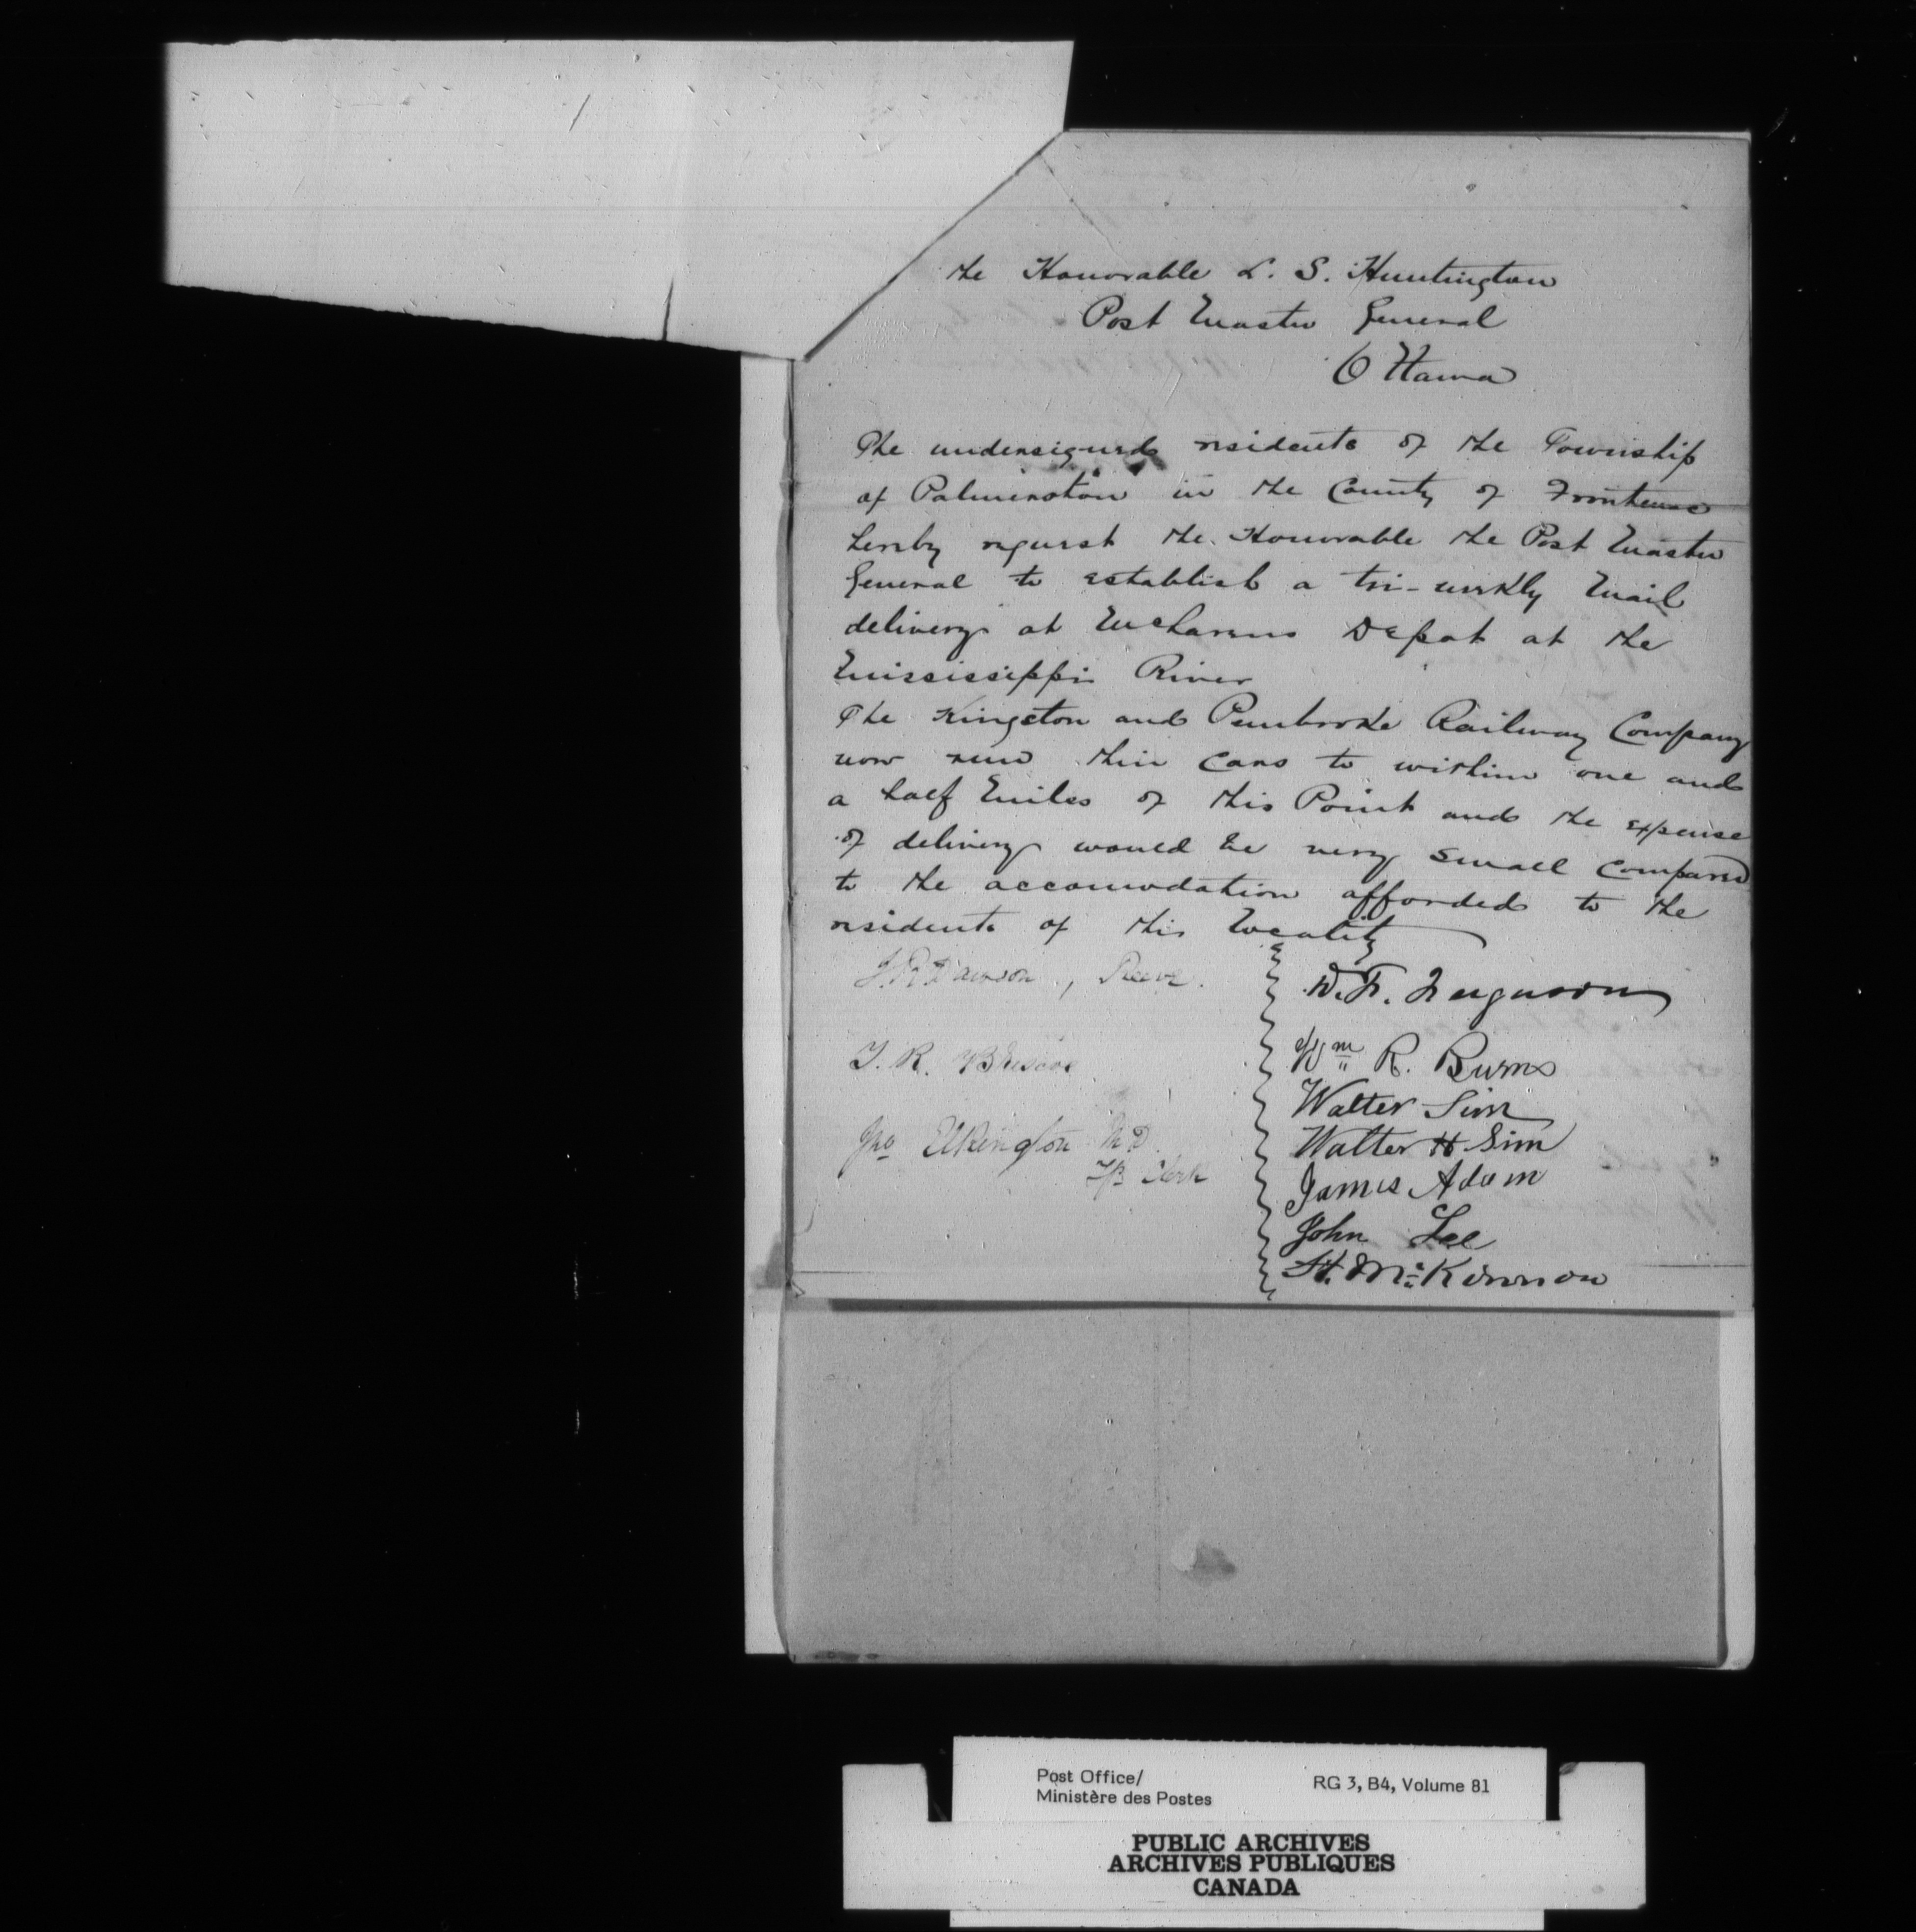 the Honorable L. S. Huntington
Post Master General
Ottawa
The undersigned residents of the Township
of Palmerston in the County of Frontenac
hereby request the Honorable the Post Master
General to establish a tri-weekly Mail
delivery at McLarens Depot at the
Mississippi River
The Kingston and Pembroke Railway Company
now run their Cars to within one and
a half Miles of this Point and the expense
of delivery would be very small compared
to the accomodation afforded to the
residents of this locality
J. R. Dawson, Reeve.
T. R. Briscoe
Jno Elkington M.D.
Tp Clerk
D. F. Ferguson
Wm R. Burns
Walter Sim
Walter H Sim
James Adam
John Lee
H. McKinnon
Post Office/
Ministère des Postes
RG 3, B4, Volume 81
PUBLIC ARCHIVES
ARCHIVES PUBLIQUES
CANADA